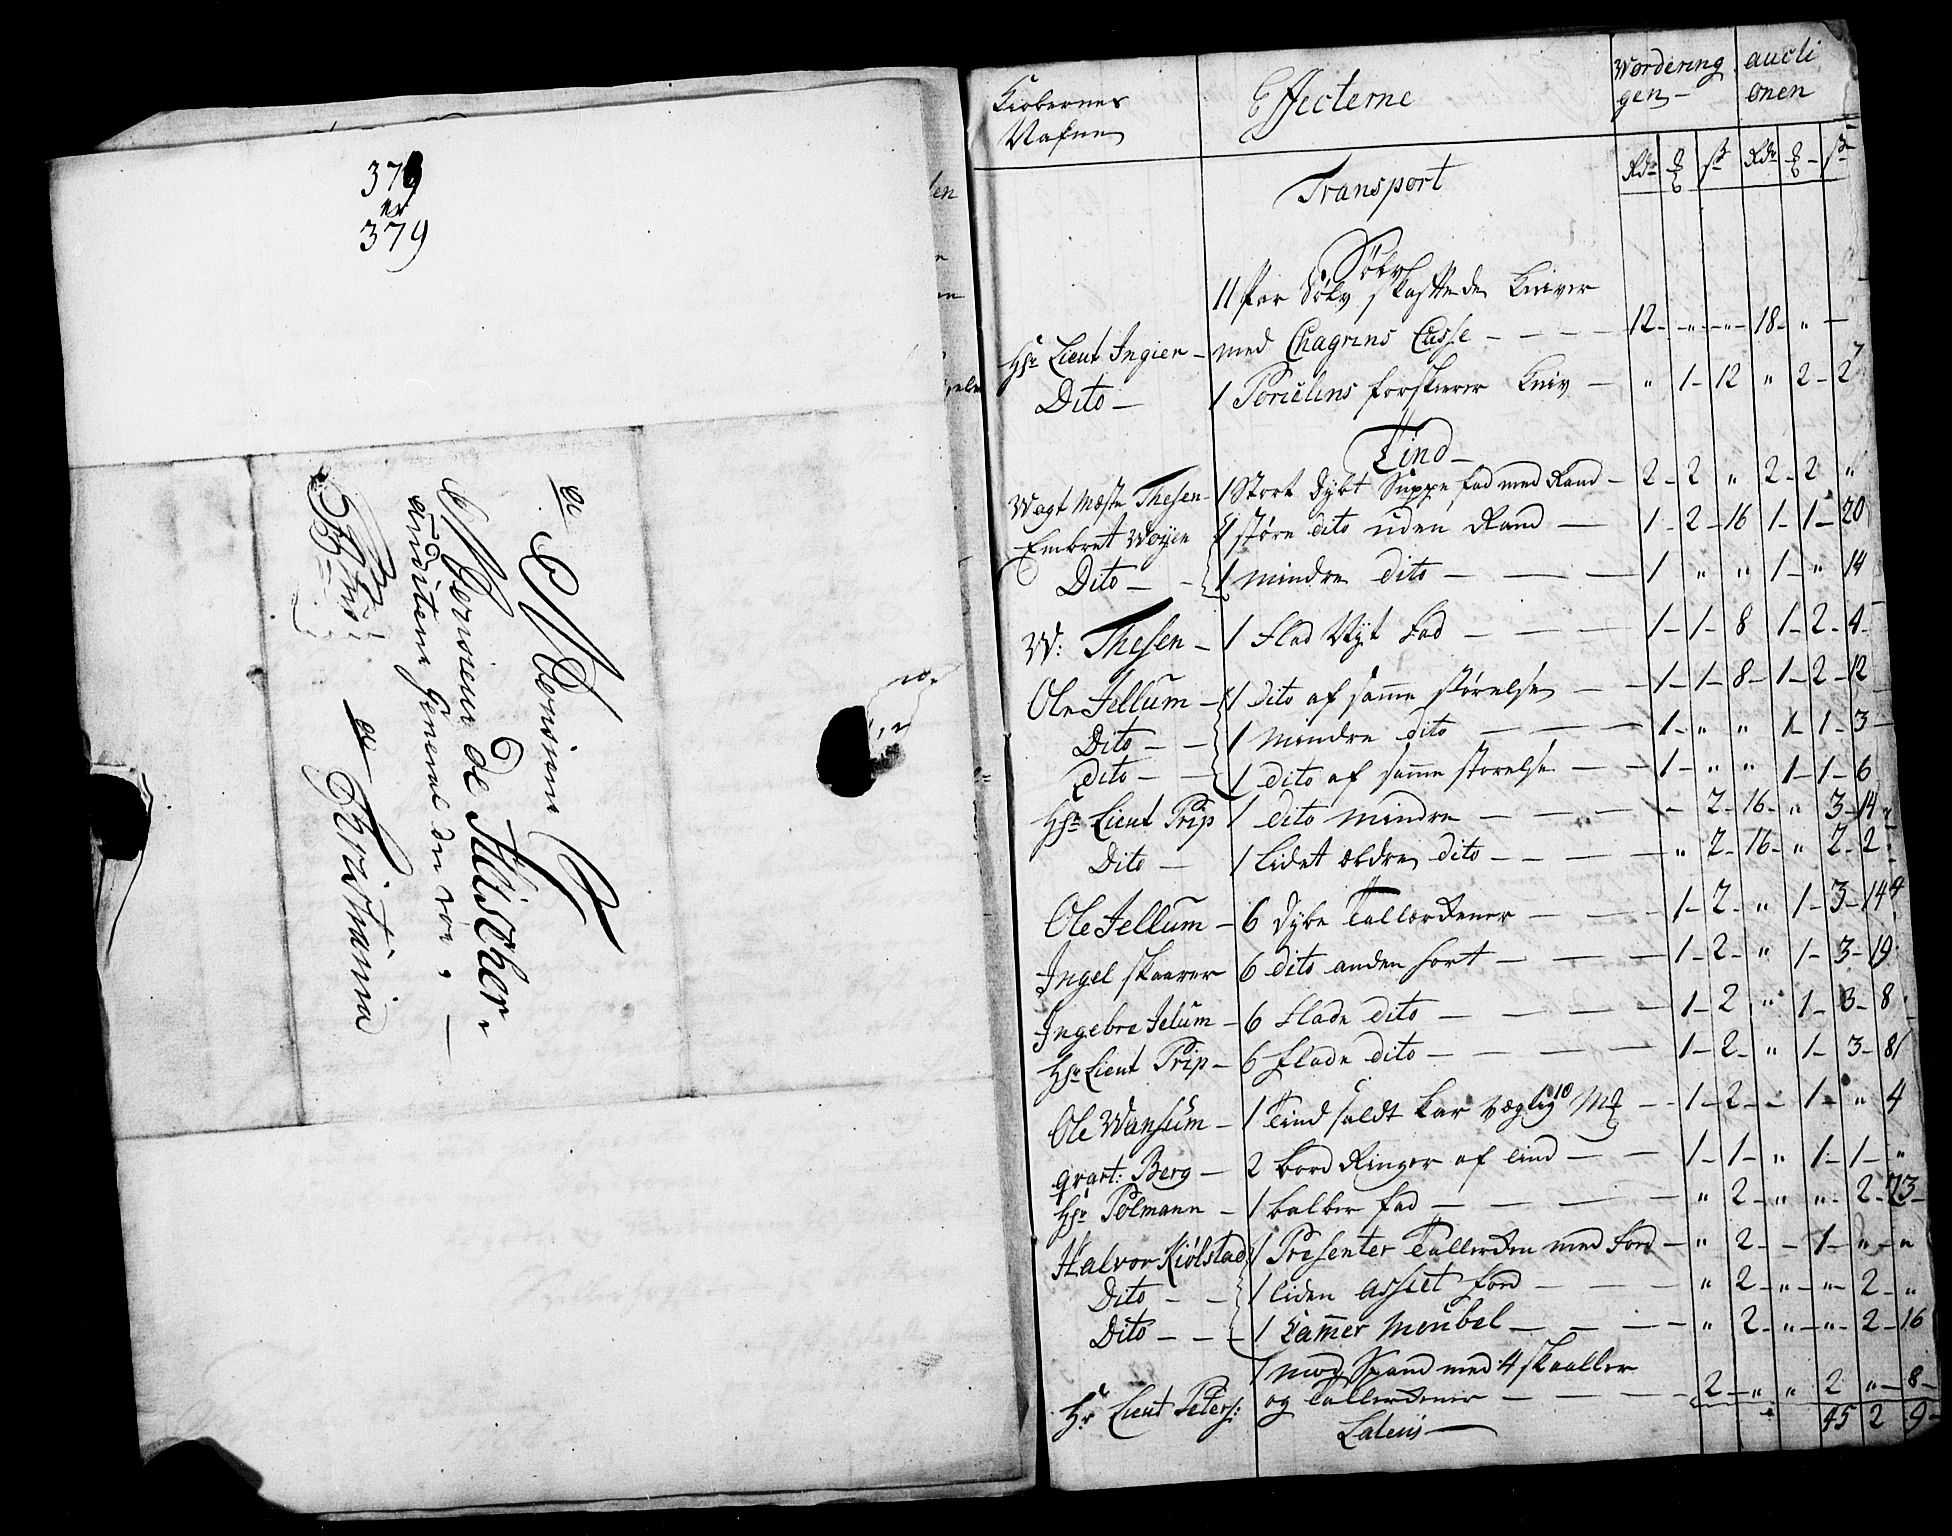 378
379
A Monsieur
Monsieur de Fillischer
auditeur General
a Christiania
Kiøbernes Nafne | Effecterne | Worderinggen | auctionen
Rdr | ƒ | sk | Rdr | ƒ | sk
Transport
Sølv
11 Par Sølv skaftede Kniver
Hr Lieut Ingier - med Chagrins Casse - 12 - " - " - 18 - " -
Dito - 1 Porcelins forskierer Kniv - " 1 - 12 " 2 - 2
Tind -
Wagt Mæste Thesen - 1 Stort dybt Suppe fad med Rand - 2 - 2 " 2 - 2 "
Embret Woyen 1 støre dito uden Rand - 1 - 2 - 16 1 - 1 - 20
Dito - - 1 mindre dito - 1 " " 1 - " 14
W: Thesen - 1 Flad Nyt Fad - 1 - 1 - 8 1 - 2 - 4
Ole Jellum - 1 Dito af samme størelse - 1 - 1 - 8 - 1 - 2 - 12
Dito - - 1 mindre dito - 1 - " " 1 - 1 - 3
dito - - 1 dito af samme størelse - 1 - " " 1 - 1 - 6
Hr Lieut Prip 1 dito mindre - - 2 - 16 - " 3 - 14
Dito - 1 lidet ældre dito - " 2 - 16 - " 2 - 2
Ole Jellum - 6 dybe Tallerkener - 1 - 2 - " 1 - 3 - 14
Ingel skaarer 6 dito anden sort - 1 - 2 - " 1 - 3 - 19
Ingebre Jelum - 6 Flade dito - 1 - 2 " 1 - 3 - 8
Hr Lieut Prip - 6 flade dito - 1 - 2 - " 1 - 3 - 8
Ole Wansum - 1 Tind saldt kar 10 - 1 - 2 - - 1 - " 4
qvart: Berg - 2 bord Ringer af tind - 1 - 1 - " 1 - 1 - "
Hr Polmann - 1 balber fad - " 2 - " " - 2 - 13
Halvor Kiølstad 1 Presenter Tallerken med Ford - " 2 - - 1 - " - "
Dito - - 1 liden assiet ford - " 2 - " - " - 2 - "
Dito - - - 1 Kammer Meubel - " 2 - " - " - 2 - 16
1 mad Spand med 4 skaaller
Hr Lieut Peters: og Tallerkener - 2 - " " 2 " - 8
Lateris - 45 2 9